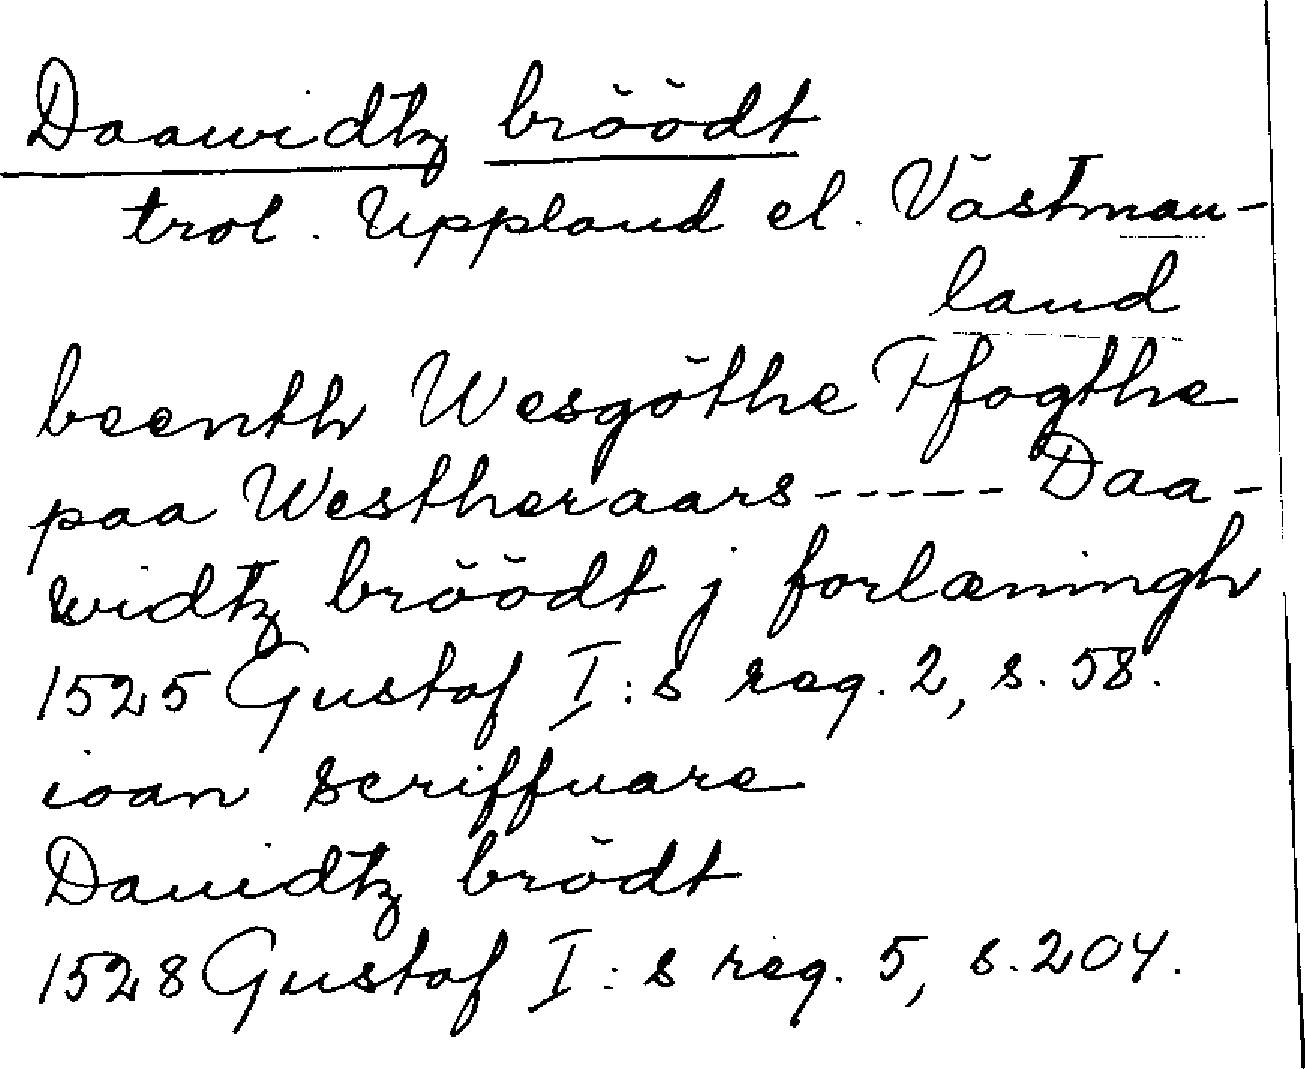 Daawidtz bröödt
trol. Uppland el. Västman-
land
beenth Wesgöthe Ffogthe
paa Westheraars ----- Daa-
widtz bröödt j forlæningh
1525 Gustaf I:s reg. 2, s. 58.
ioan scriffuare
Dauidtz brödt
1528 Gustaf I:s reg. 5, s. 204.